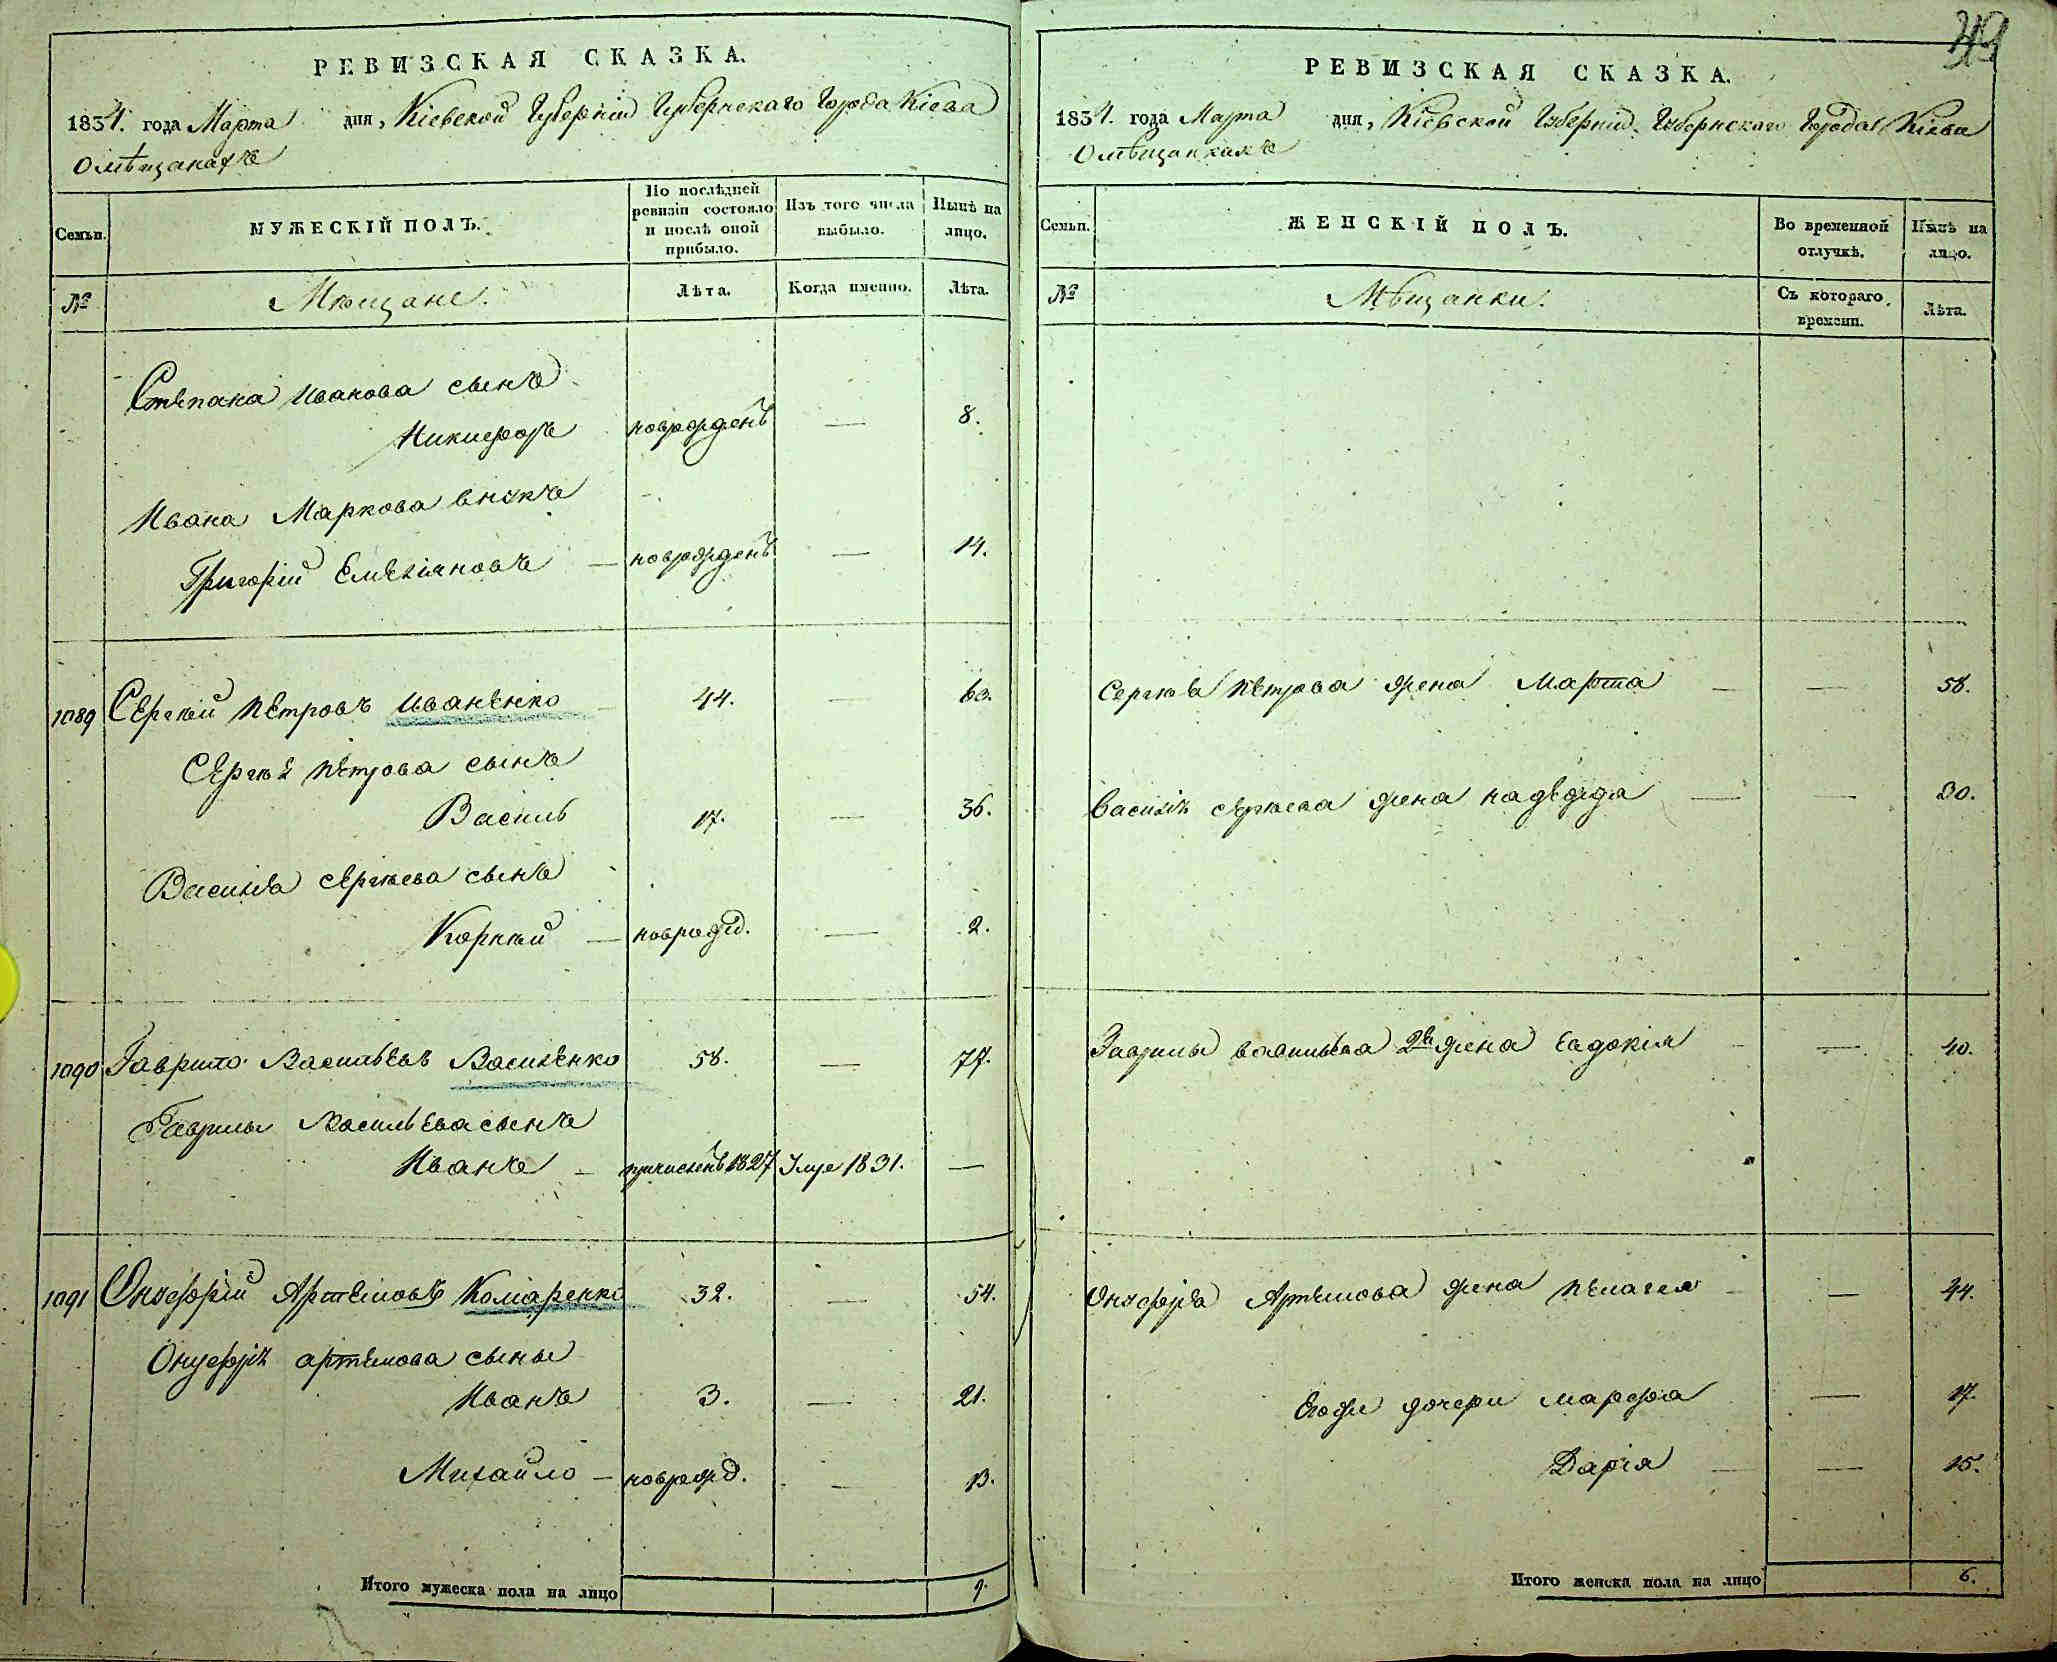 РЕВИЗСКАЯ СКАЗКА.
1834. года Марта дня, Кіевской Губерніи Губернскаго Города Кіева
О мѣщанахъ
Семьи.
МУЖЕСКІЙ ПОЛЪ.
По послѣдней ревизіи состояло и послѣ оной прибыло.
Изъ того числа выбыло.
Нынѣ на лицо.
№
Мѣщане.
Лѣта.
Когда именно.
Лѣта.
Степана Иванова сынъ
Никифоръ новорожденъ — 8.
Ивана Маркова внукъ
Григорій Емеліяновъ — новорожденъ — 14.
1089 Сергѣй Петровъ Иваненко 44. — 63.
Сергѣя Петрова сынъ
Василь 17. — 36.
Василія Сергѣева сынъ
Корнѣй — новрожд. — 2.
1090 Гаврило Васильевъ Василенко 58. — 77.
Гаврилы Васильева сынъ
Иванъ — причисленъ 1827 Умре 1831. —
1091 Онуфрій Артемовъ Комаренко 32. — 54.
Онуфрія Артемова сыны
Иванъ 3. — 21.
Михайло — новрожд. — 13.
Итого мужеска пола на лицо 9.
49
РЕВИЗСКАЯ СКАЗКА.
1834. года Марта дня, Кіевской Губерніи Губернскаго Города Кіева
О мѣщанкахъ
Семьи.
ЖЕНСКІЙ ПОЛЪ.
Во временной отлучкѣ.
Нынѣ на лицо.
№
Мѣщанки.
Съ котораго времени.
Лѣта.
Сергѣя Петрова жена Марта — — 58.
Василія Сергѣева жена Надежда — — 30.
Гаврилы Васильева 2я жена Евдокія — — 40.
Онуфрія Артемова жена Пелагея — — 44.
Егожъ дочери Марфа — 17.
Дарія — — 15.
Итого женска пола на лицо 6.